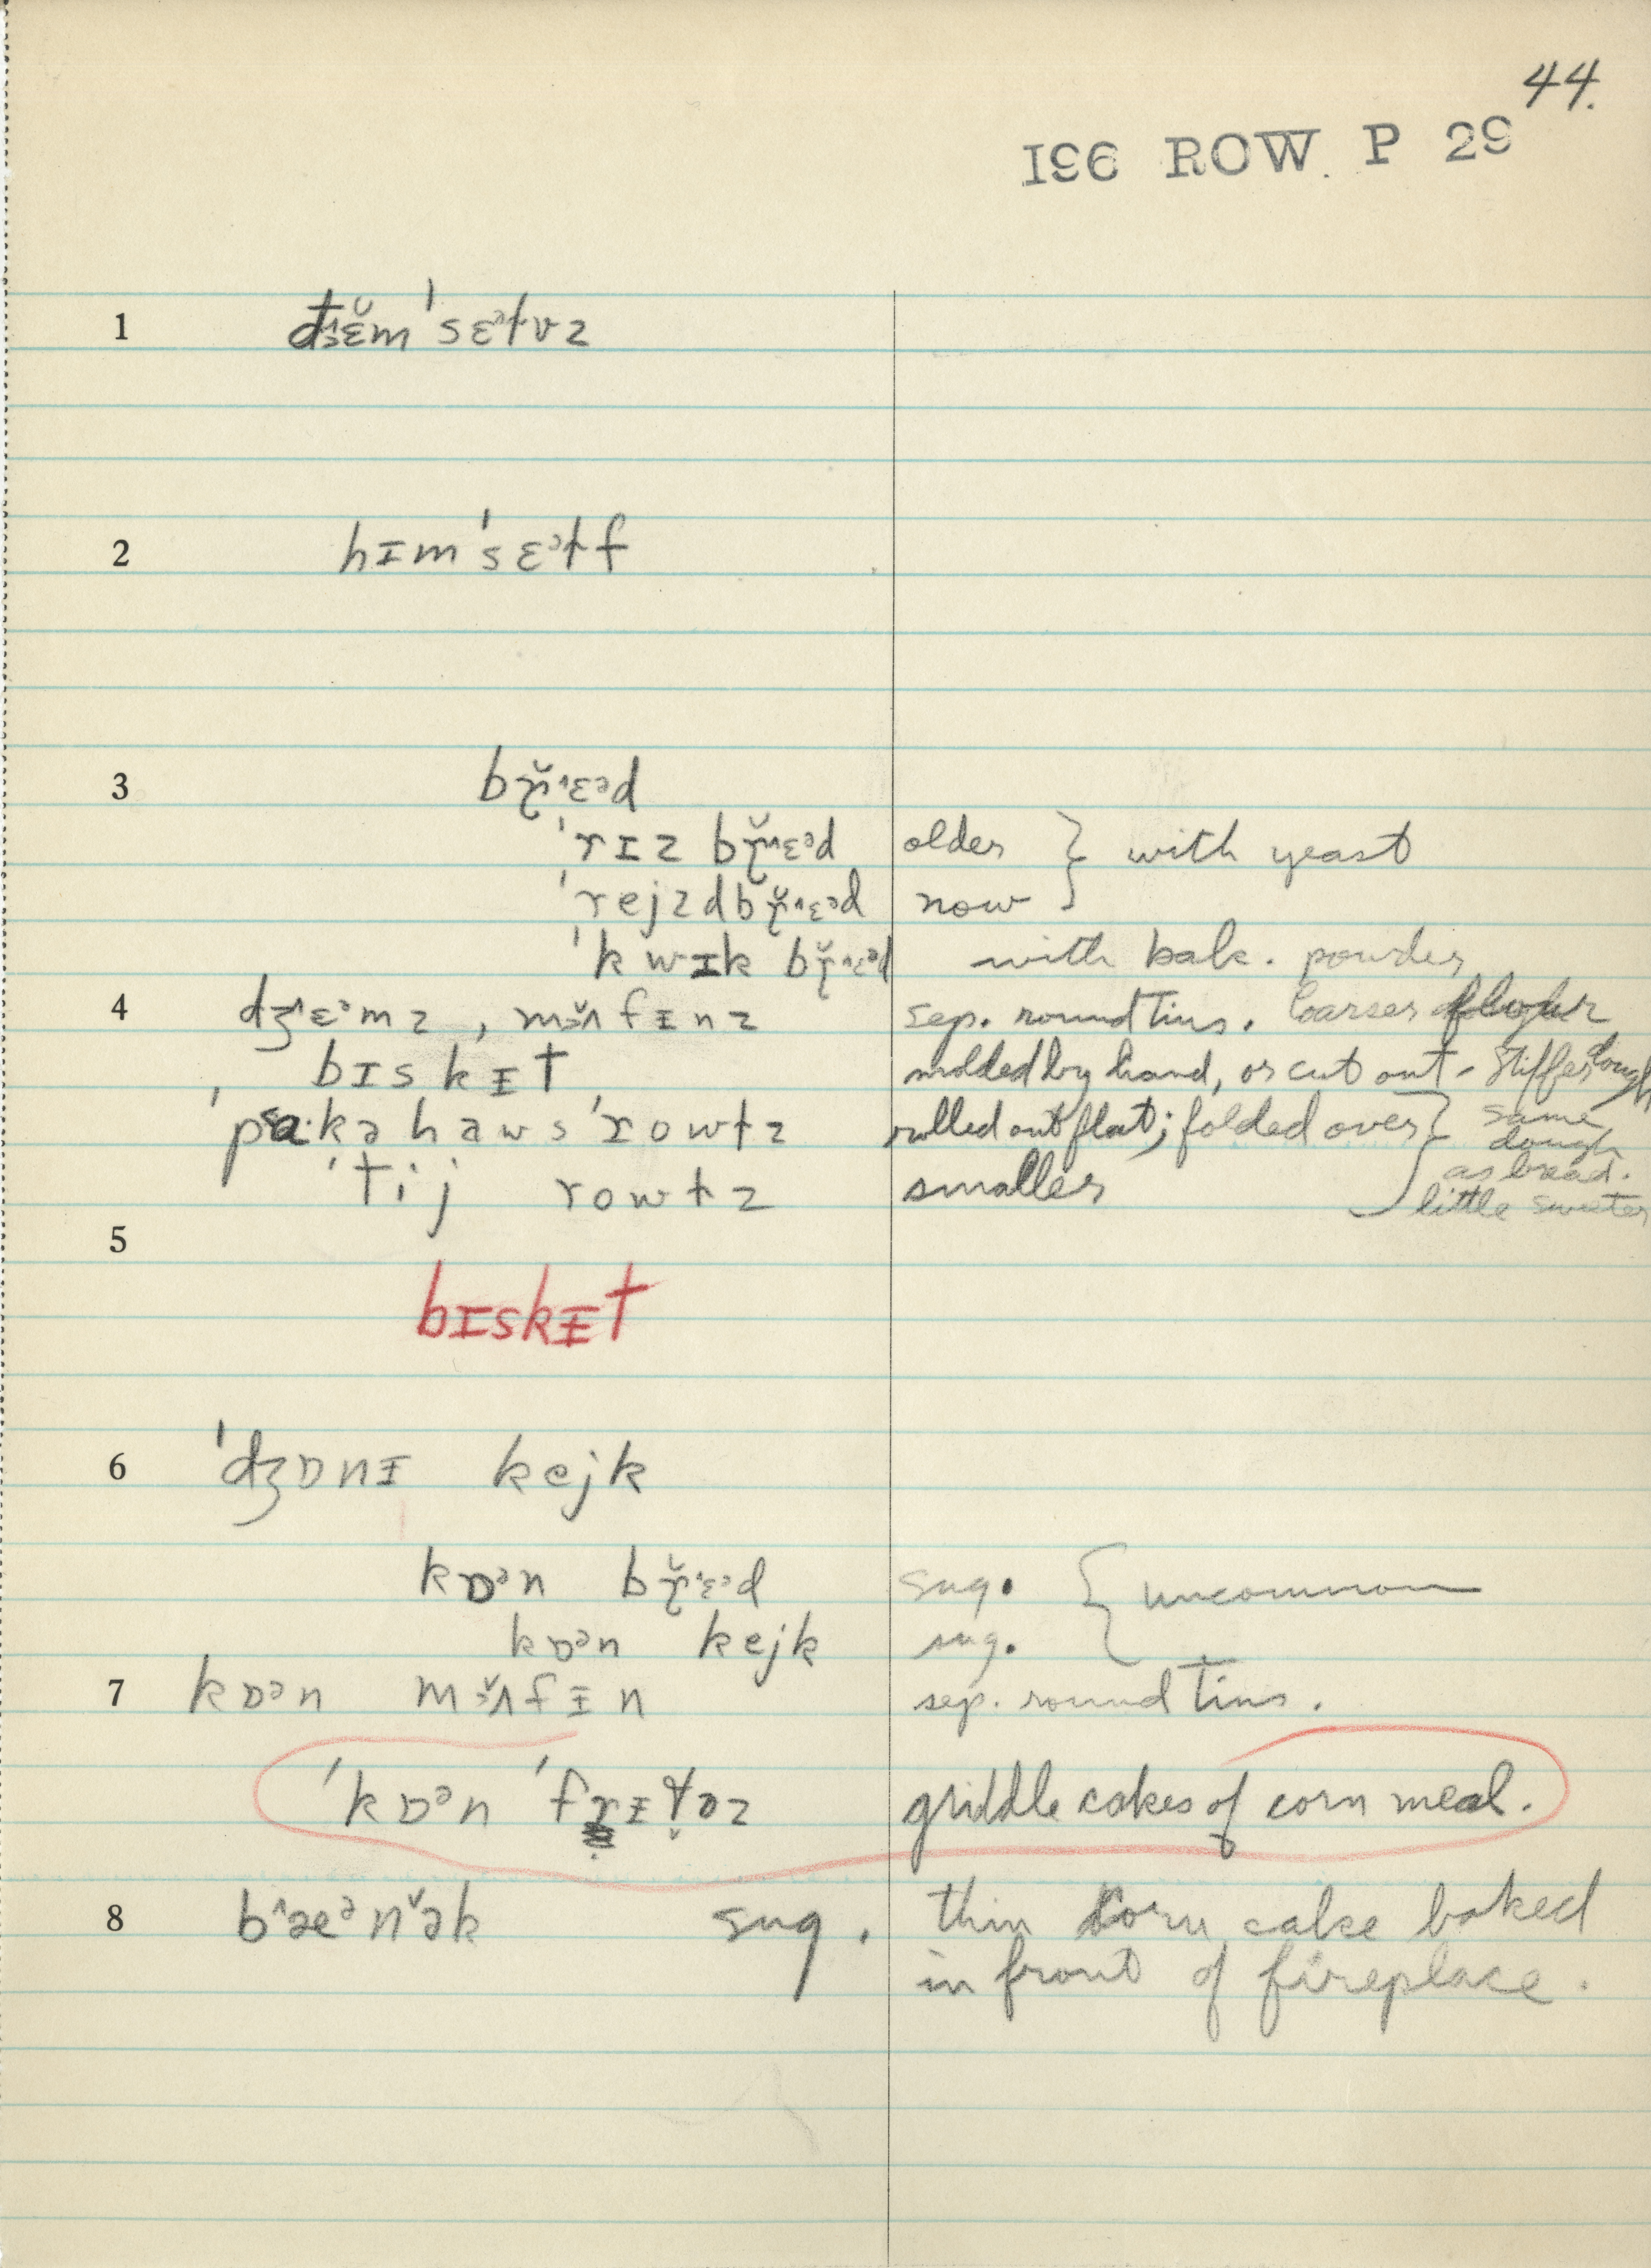 44.
196 ROW P 29
1 ðɛ̆m'sɛᵊɫvz
2 hɪm'sɛᵊɫf
3 bɹ̯̆ɛᵊd
'rɪz bɹ̯̆ɛᵊd older } with yeast
'rejzdbɹ̯̆ɛᵊd now
'kwɪk bɹ̯̆ɛᵊd with bak. powder
4 dʒ˄ɛᵊmz, mɜ̆˄fɪ̵nz sep. round tins. Coarser flour
bɪskɪ̵t molded by hand, or cut out - stiffer dough
'pa·kəhaws'rowɫz rolled out flat; folded over } same dough as bread. little sweeter
'tij rowɫz smaller
5
bɪskɪ̵t
6 'dʒɒnɪ̵ kejk
kɒᵊn bɹ̯̆ɛᵊd sug. { uncommon
kɒᵊn kejk sug.
7 kɒᵊn mɜ̆˄fɪ̵n sep. round tins.
'kɒᵊn 'frɪ̵t̬əz griddle cakes of corn meal.
8 b˄æᵊn˅ək sug. thin corn cake baked
in front of fireplace.